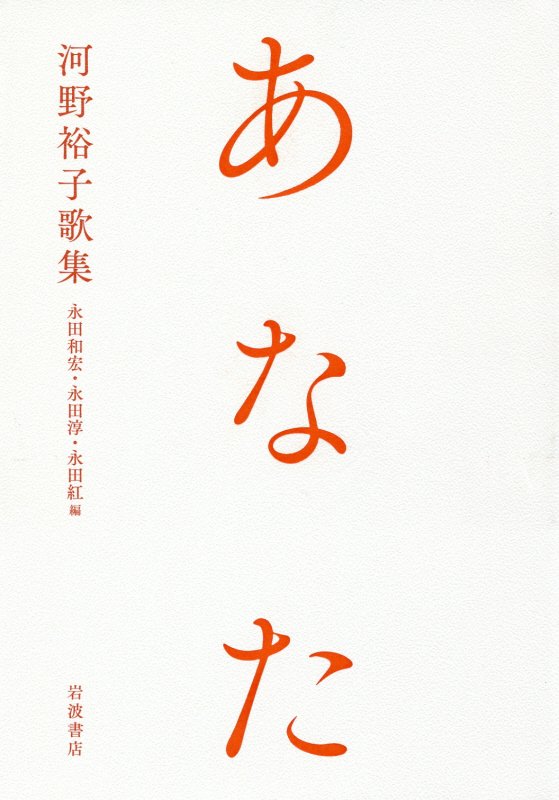 あなた
河野裕子歌集
永田和宏・永田淳・永田紅 編
岩波書店